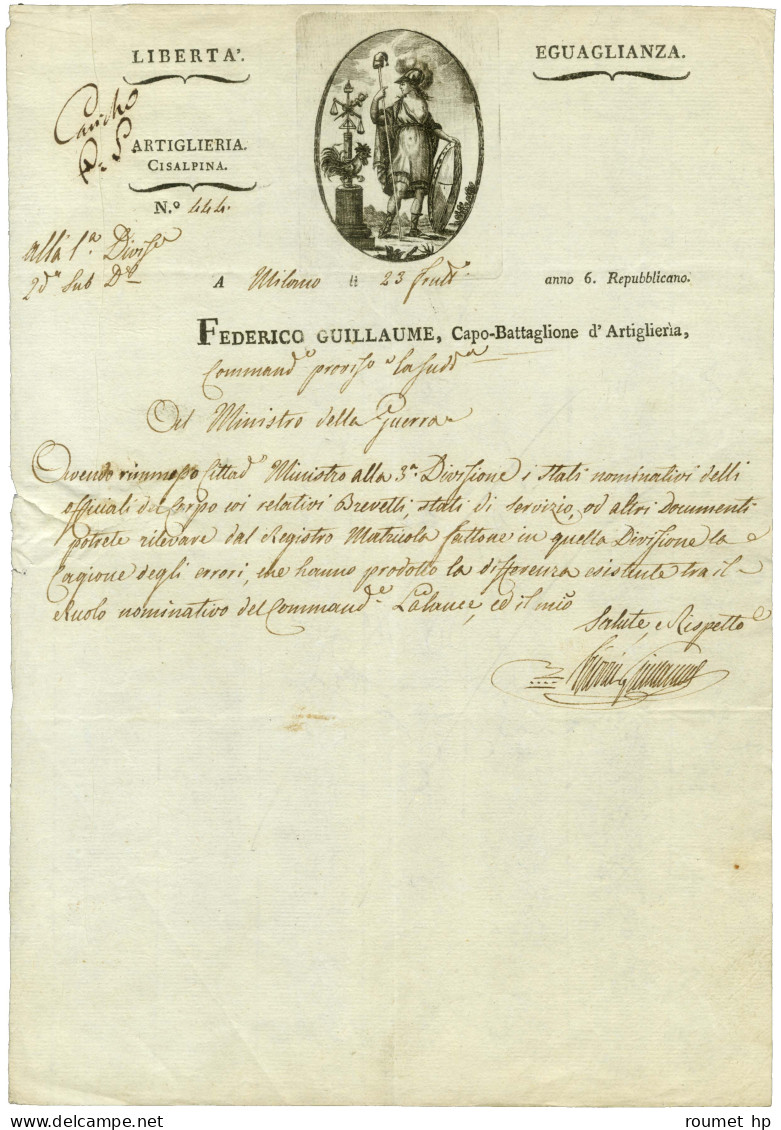 LIBERTA'.
EGUAGLIANZA.
ARTIGLIERIA.
CISALPINA.
N.º 444.
alla 1.ª Divis.e
2.da Sub D.e
A Milano li 23 frutt.e anno 6. Repubblicano.
FEDERICO GUILLAUME, Capo-Battaglione d'Artiglierìa,
Command.e provis.o la sudd.a
Al Ministro della Guerra
Avendo rimmesso Cittad.o Ministro alla 3.a Divisione i stati nominativi delli
officiali del Corpo coi relativi Brevetti, stati di servizio, od altri Documenti
potrete rilevare dal Registro Matricola fattone in quella Divisione la
Cagione degli errori, che hanno prodotto la differenza esistente tra il
Ruolo nominativo del Command.e Lalance, ed il mio
Salute, e Rispetto
roumet hp